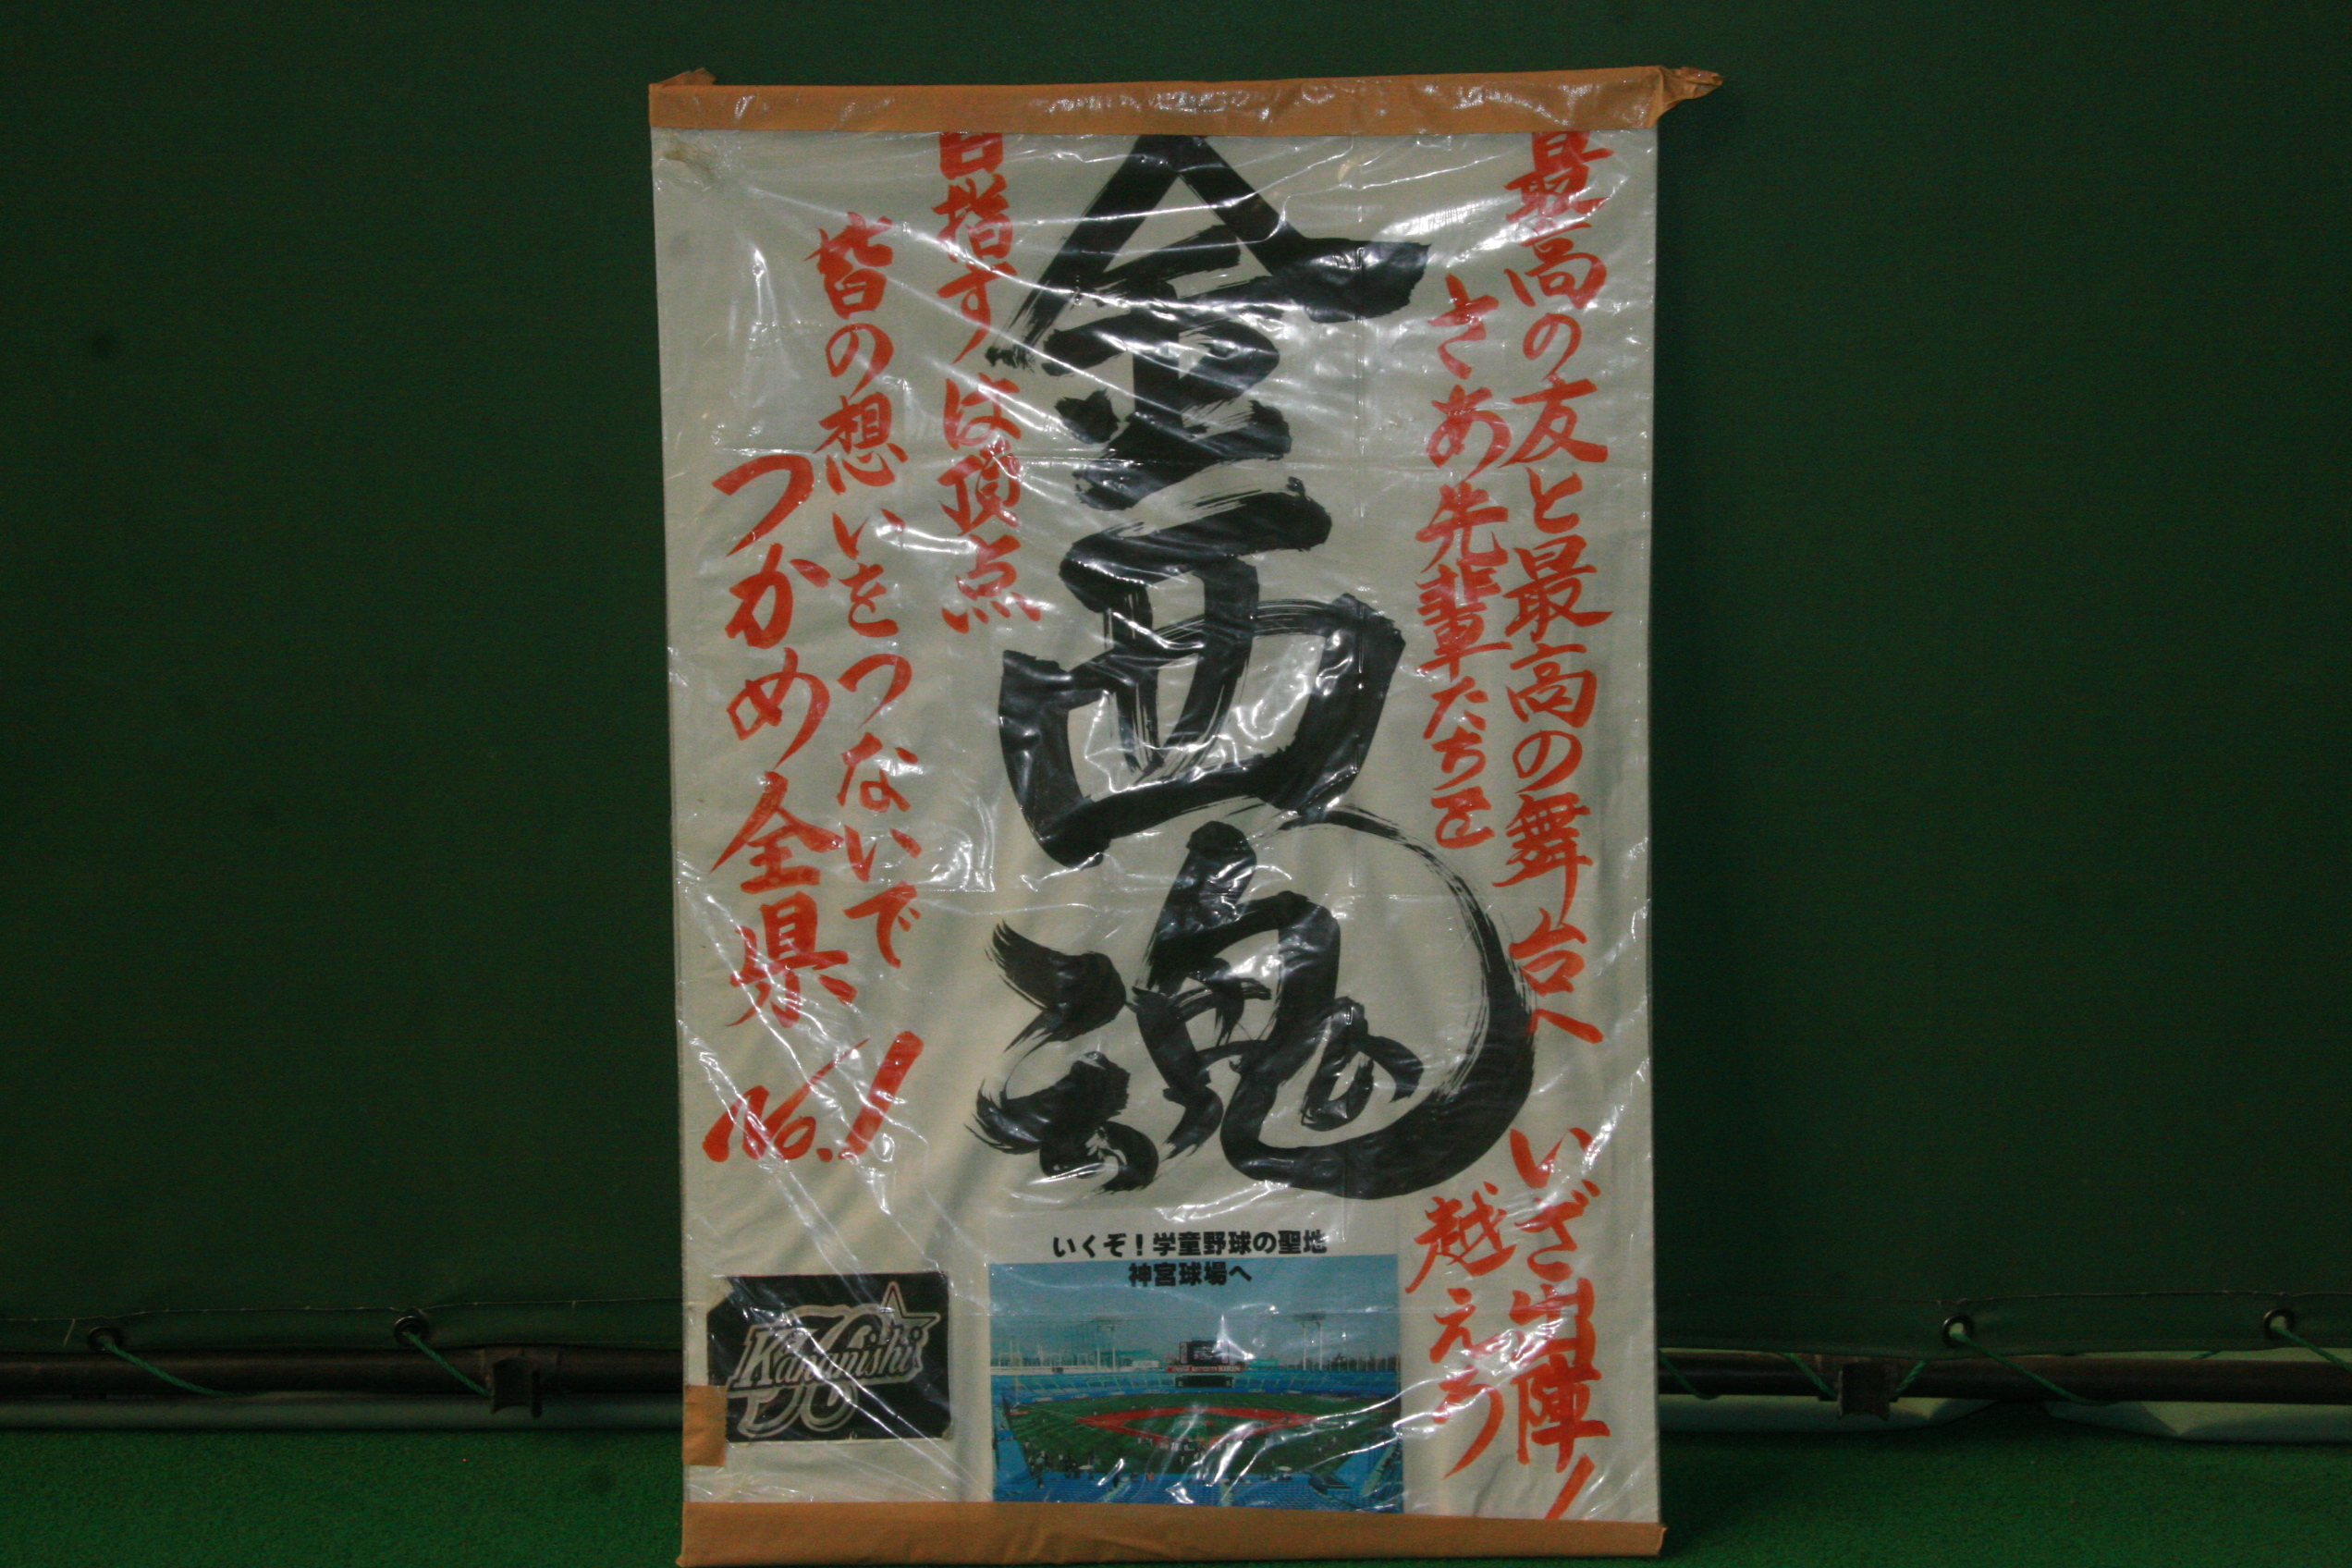 最高の友と最高の舞台へ いざ出陣!
さあ先輩たちを 越えろ
金西魂
目指すは頂点
皆の想いをつないで
つかめ全県 No.1
いくぞ!学童野球の聖地
神宮球場へ
Kananishi